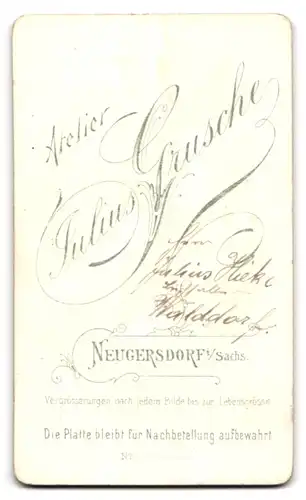 Atelier
Julius Grusche
Herr
Julius
Walddorf
NEUGERSDORF i/Sachs.
Vergrösserungen nach jedem Bilde bis zur Lebensgrösse.
Die Platte bleibt für Nachbestellung aufbewahrt
No